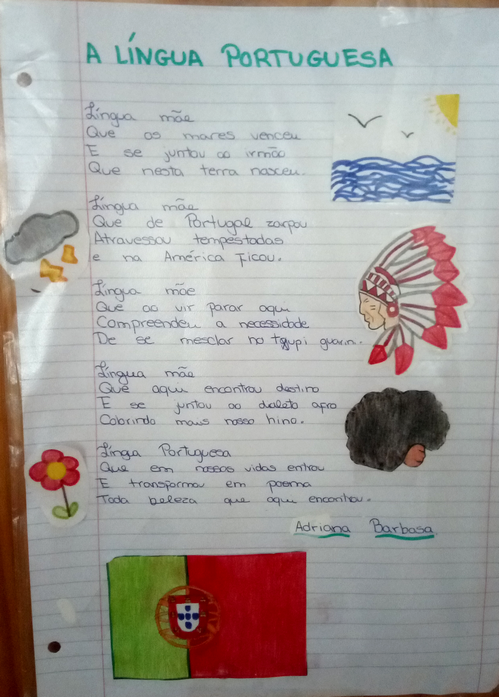 A LÍNGUA PORTUGUESA
Língua mãe
Que os mares venceu
E se juntou ao irmão
Que nesta terra nasceu.
Língua mãe
Que de Portugal zarpou
Atravessou tempestades
e na América ficou.
Língua mãe
Que ao vir parar aqui
Compreendeu a necessidade
De se mesclar no tupi guarin.
Língua mãe
Que aqui encontrou destino
E se juntou ao dialeto afro
Colorindo mais nosso hino.
Língua Portuguesa
Que em nossas vidas entrou
E transformou em poema
Toda beleza que aqui encontrou.
Adriana Barbosa